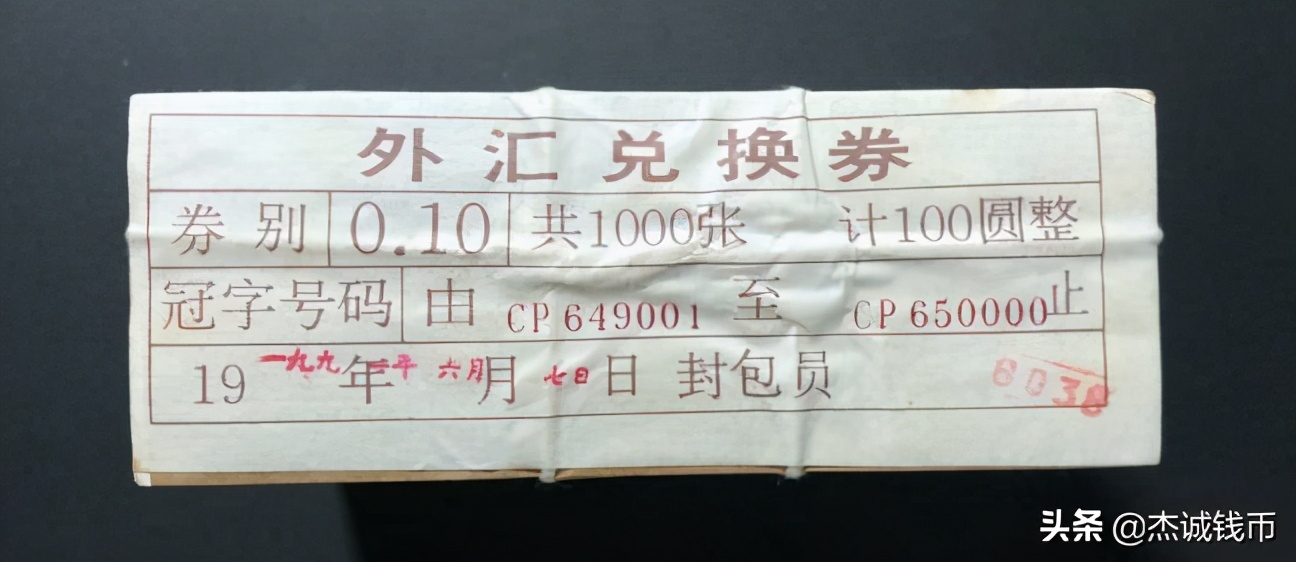 外汇兑换券
券别 0.10 共1000张 计100圆整
冠字号码 由 CP 649001 至 CP 650000 止
19 一九九二年 年 六月 月 七日 日 封包员 6038
头条 @杰诚钱币